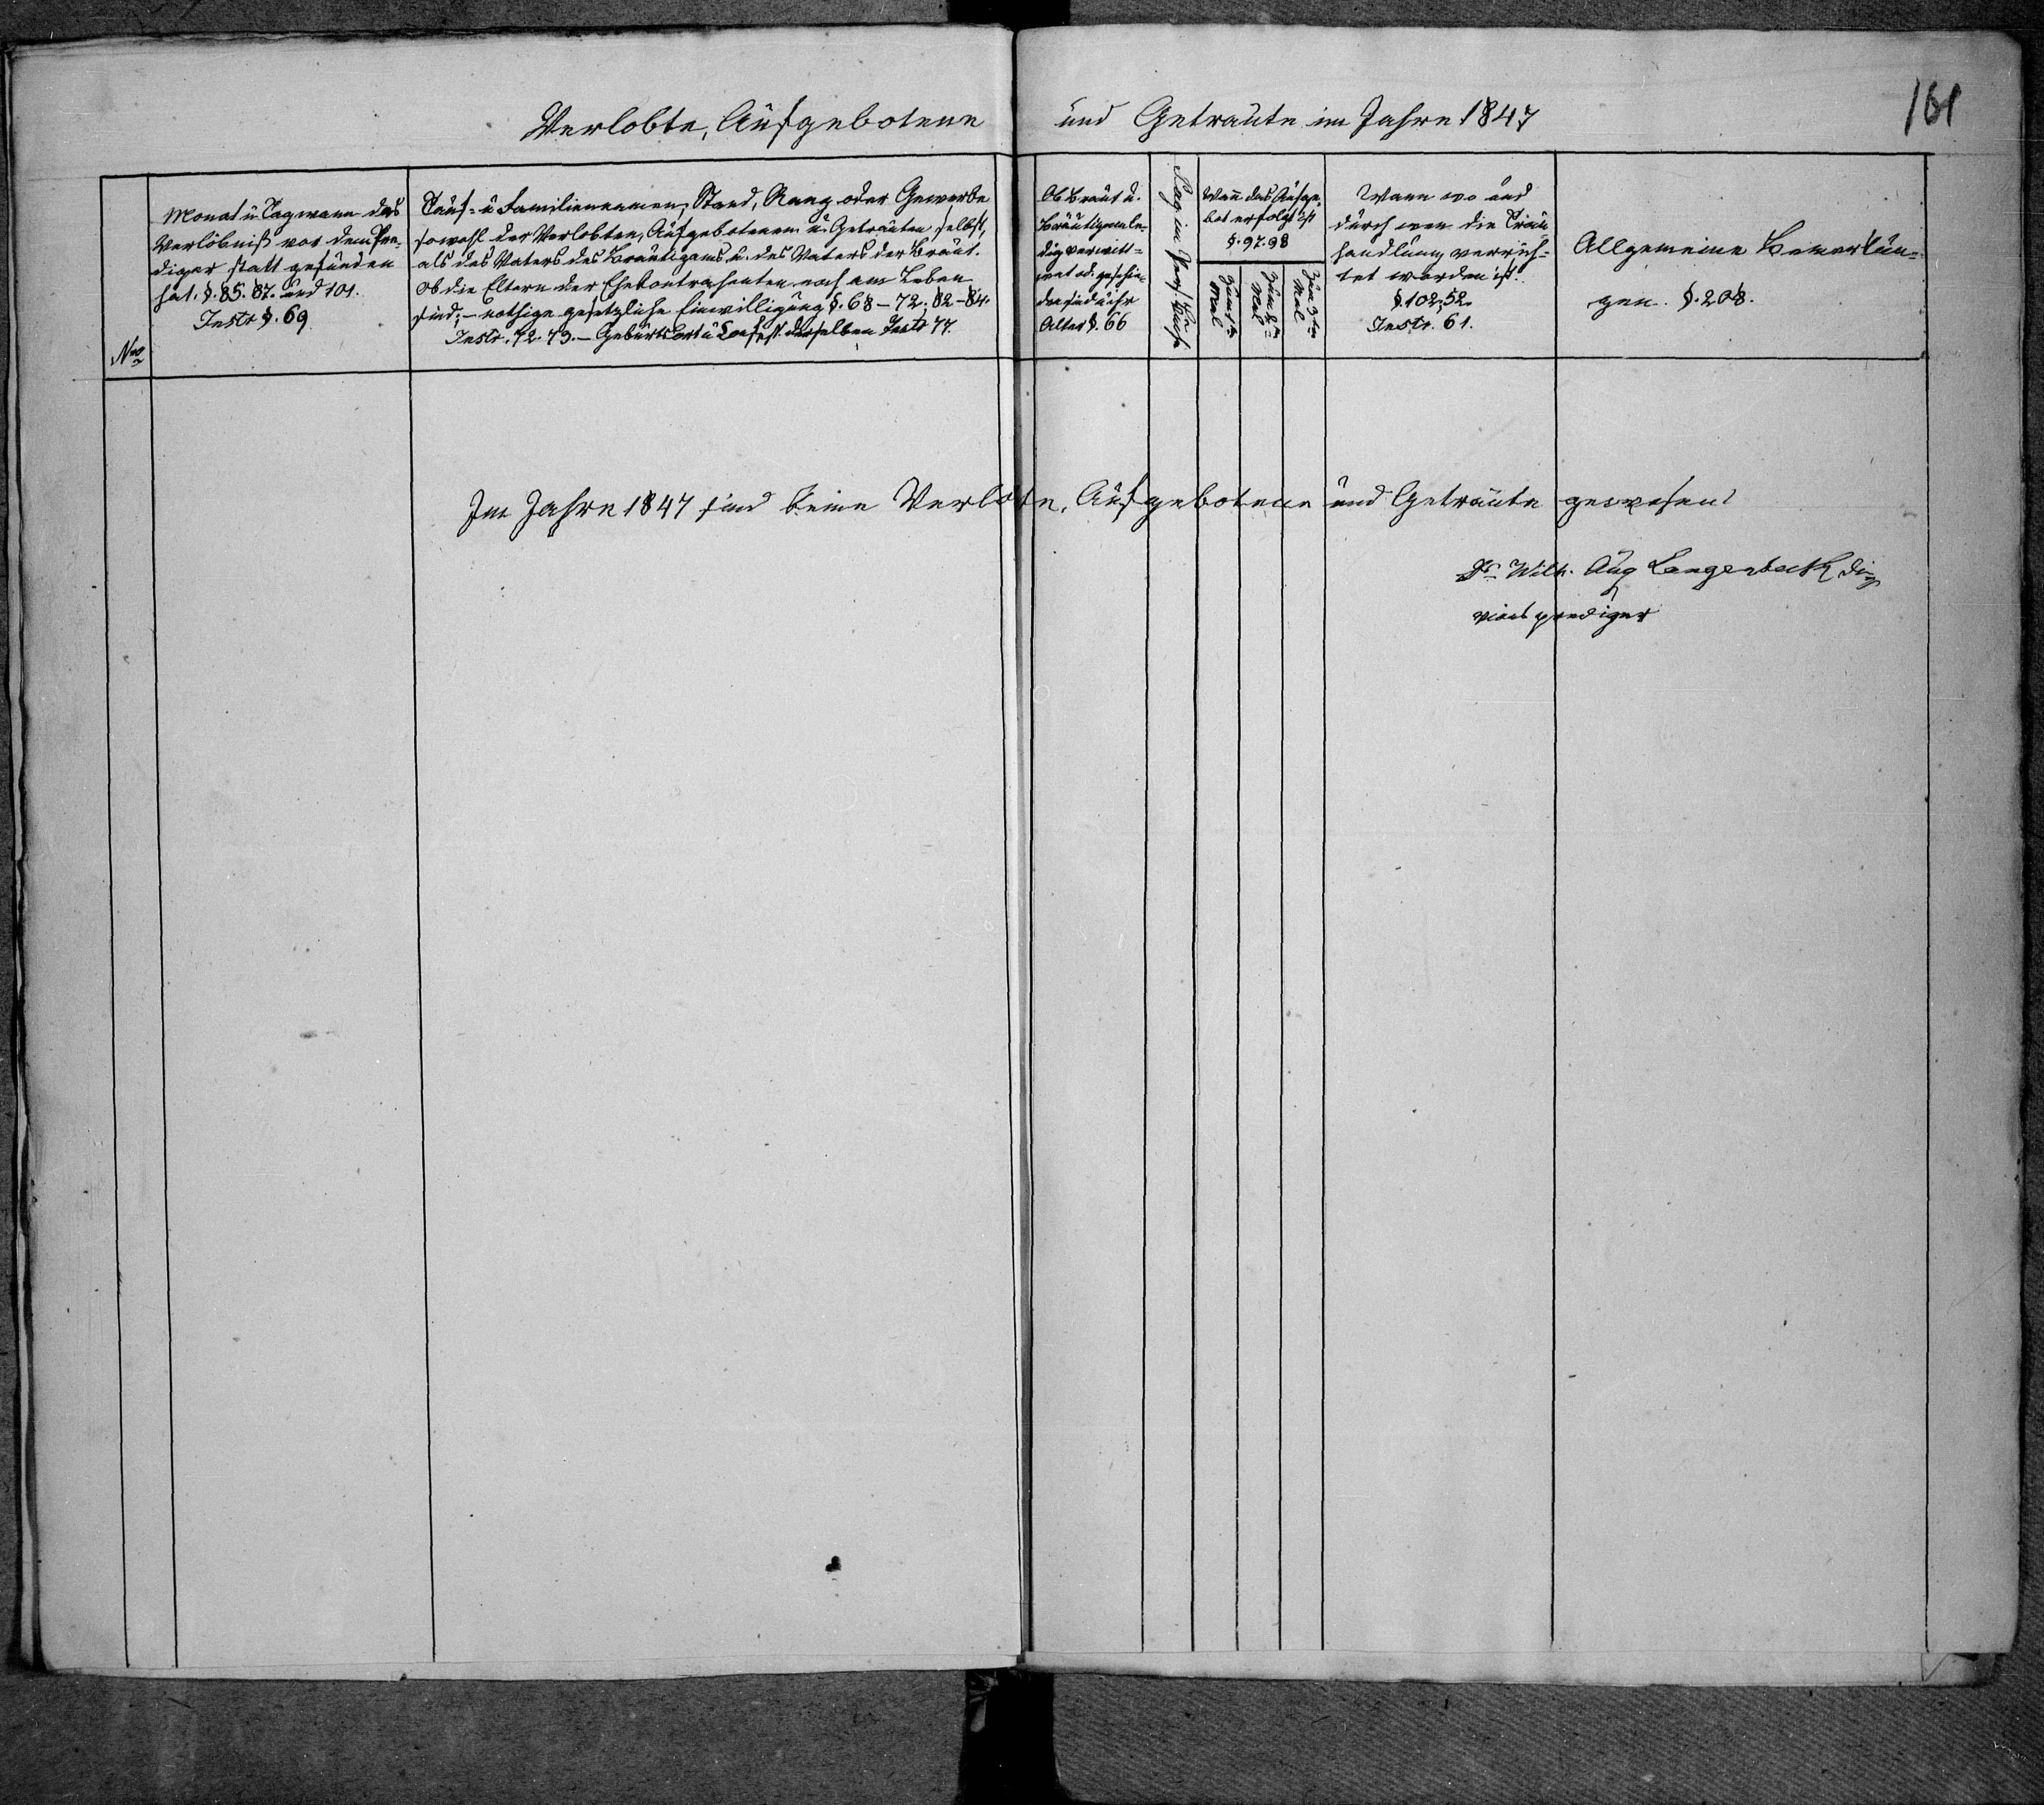 161
Verlobte, Aufgebotene und Getraute im Jahre 1847
Nro
Monat u. Tag wann das
Verlöbniß vor dem Pre-
diger statt gefunden
hat. §. 85. 87. und 101.
Instr §. 69
Tauf- u Familiennamen, Stand, Rang oder Gewerbe
sowohl der Verlobten, Aufgebotenen u. Getrauten selbst,
als des Vaters des Bräutigams u. des Vaters der Braut.
Ob die Eltern der Ehekontrahenten noch am Leben
sind; – nothige gesetzliche Einwilligung §. 68 – 72; 82 – 84.
Instr. 72. 73. – Geburtsort u Confess. derselben Instr 77.
Ob Braut u.
Bräutigam le-
dig verwitt-
wet od. geschie-
den sind u ihr
Alter §. 66
Tag im
Wann das Aufge-
bot erfolgt ist
§. 97. 98
Zum 1ten
Mal
Zum 2ten
Mal
Zum 3ten
Mal
Wann wo und
durch wen die Trau-
handlung verrich-
tet worden ist.
§ 102; 52.
Instr. 61.
Allgemeine Bemerkun-
gen. §. 208.
Im Jahre 1847 sind keine Verlobte, Aufgebotene und Getraute gewesen
Dr. Wilh. Aug Langenbeck Di-
visionsprediger